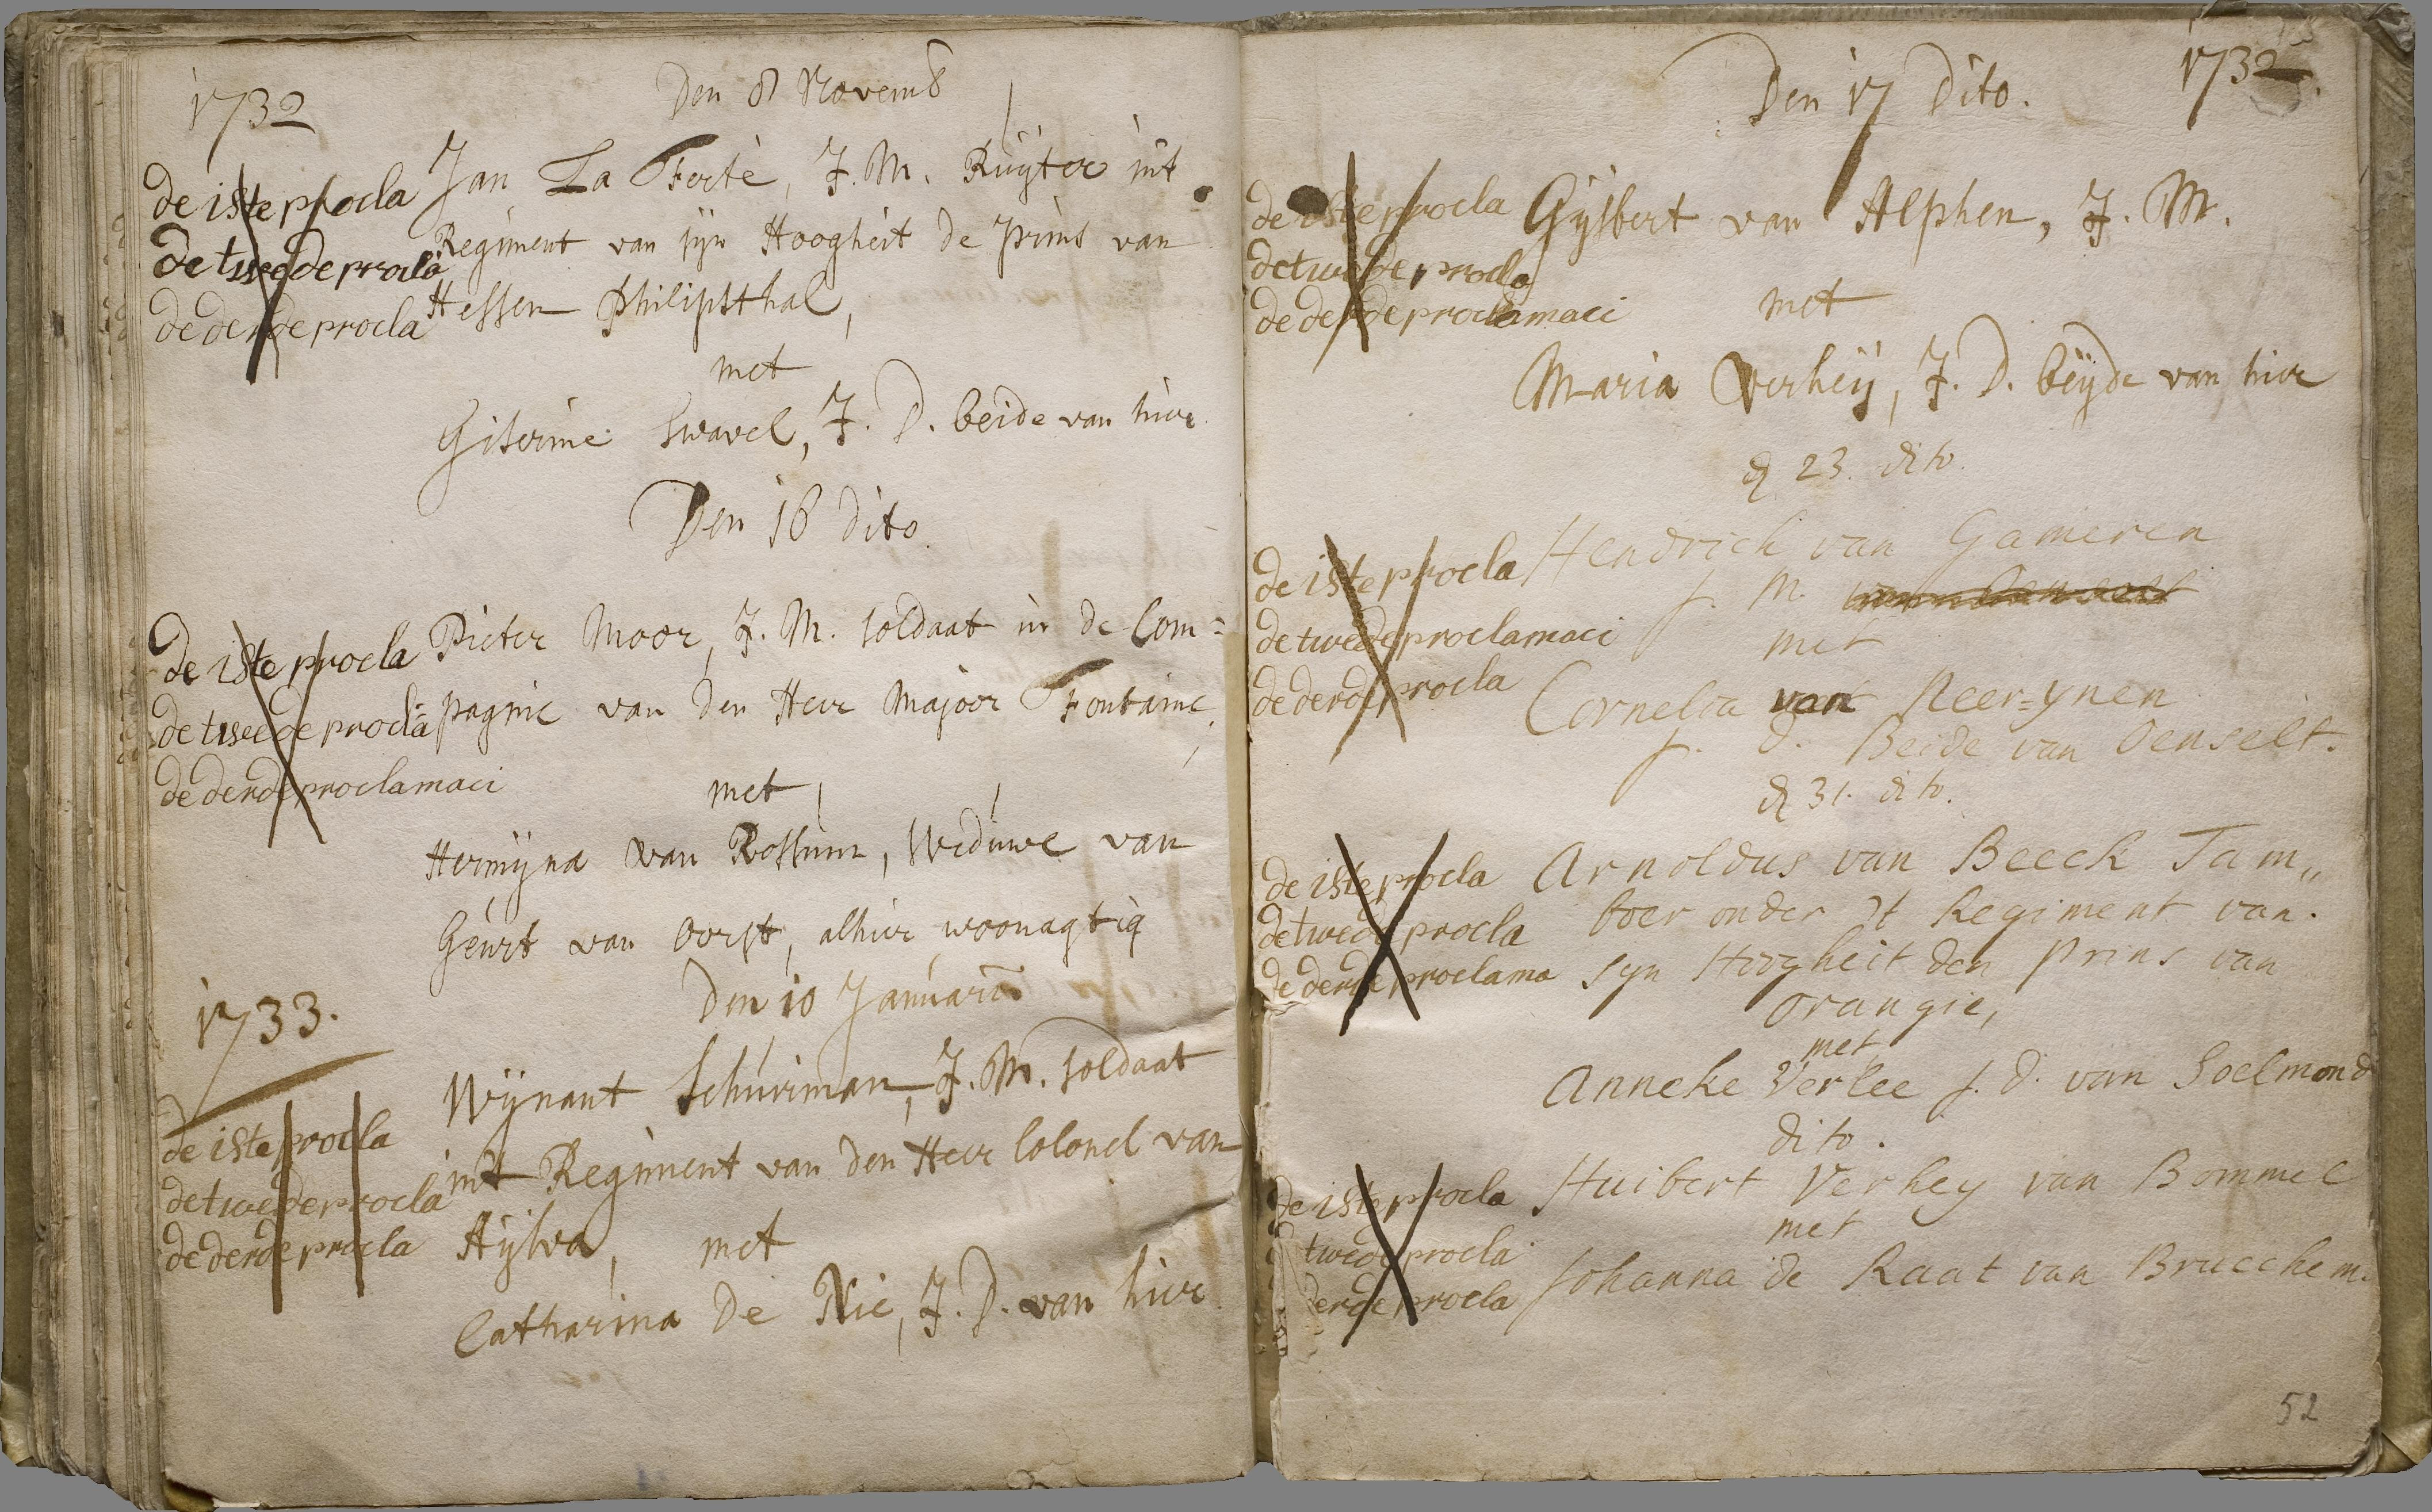 1732
Den 8 Novemb
de iste procla
de tweede procla
de derde procla
Jan La Forte, J. M. Ruyter int
Regiment van syn Hoogheit de prins van
Hessen Philipsthal,
met
Giserine Swavel, J. D. beide van hier
Den 16 dito
de iste procla
de tweede procla
de derde proclamaci
Pieter Moor, J. M. soldaat in de Com=
pagnie van den Heer Majoor Fontaine,
met
Hermyna van Rossum, Weduwe van
Geurt van Oorst, alhier woonagtig
1733.
Den 10 Januarii
de iste procla
de twede procla
de derde procla
Wynant Schurman, J. M. soldaat
int Regiment van den Heer Colonel van
Aylva, met
Catharina De Nie, J. D. van hier
1732
Den 17 Dito.
de iste procla
de twede procla
de derde proclamaci
Gysbert van Alphen, J. M.
met
Maria Verheij, J. D. beyde van hier
d 23. dito
de iste procla
de twede proclamaci
de derde procla
Hendrick van Gameren
J. M.
met
Cornelia van Neer=ynen
J. d. Beide van Oenselt.
d 31. dito.
de iste procla
de twede procla
de derde proclama
Arnoldus van Beeck Tam„
boer onder 't Regiment van
syn Hoogheit den Prins van
orangie,
met
Anneke Verkee J. d. van Soelmond
dito.
de iste procla
twede procla
derde procla
Huibert Verhey van Bommel
met
Johanna de Raat van Bruechem.
52